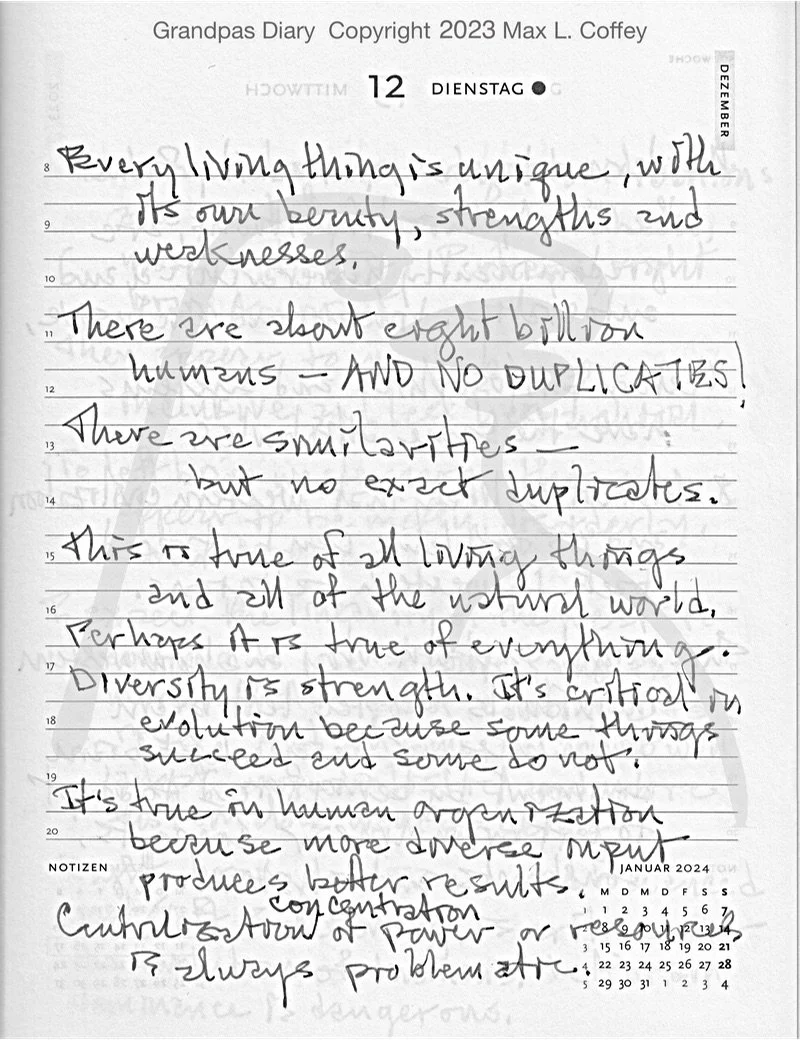 Grandpas Diary Copyright 2023 Max L. Coffey
12 DIENSTAG
DEZEMBER
8 Every living thing is unique, with
its own beauty, strengths and
9
weaknesses.
10
11 There are about eight billion
humans — AND NO DUPLICATES!
12
13 There are similarities —
but no exact duplicates.
14
15 This is true of all living things
and all of the natural world.
16
Perhaps it is true of everything.
17
Diversity is strength. It's critical in
18 evolution because some things
succeed and some do not.
19
It's true in human organization
20 because more diverse input
NOTIZEN
produces better results.
concentration
Centralization of power or resources
is always problematic.
JANUAR 2024
M D M D F S S
1 1 2 3 4 5 6 7
2 8 9 10 11 12 13 14
3 15 16 17 18 19 20 21
4 22 23 24 25 26 27 28
5 29 30 31 1 2 3 4